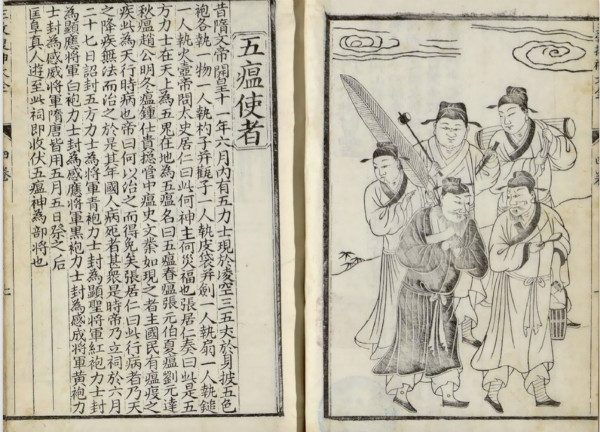 五瘟使者
昔隋文帝開皇十一年六月內有五力士現於凌空三五丈於身披五色
袍各執 物一人執杓子并罐子一人執皮袋并劍一人執扇一人執鎚
一人執火壺帝問太史居仁曰此何神主何災福也張居仁奏曰此是五
方力士在天上為五鬼在地為五瘟名曰五瘟春瘟張元伯夏瘟劉元達
秋瘟趙公明冬瘟鍾仕貴總管中瘟史文業如現之者主國民有瘟疫之
疾此為天行時病也帝曰何以治之而得免矣張居仁曰此行病者乃天
之降疾無法而治之於是其年國人病死者甚衆是時帝乃立祠於六月
二十七日詔封五方力士為將軍青袍力士封為顯聖將軍紅袍力士封
為顯應將軍白袍力士封為感應將軍黑袍力士封為感成將軍黃袍力
士封為感威將軍隋唐皆用五月五日祭之后
匡阜真人遊至此祠即收伏五瘟神為部將也
四卷